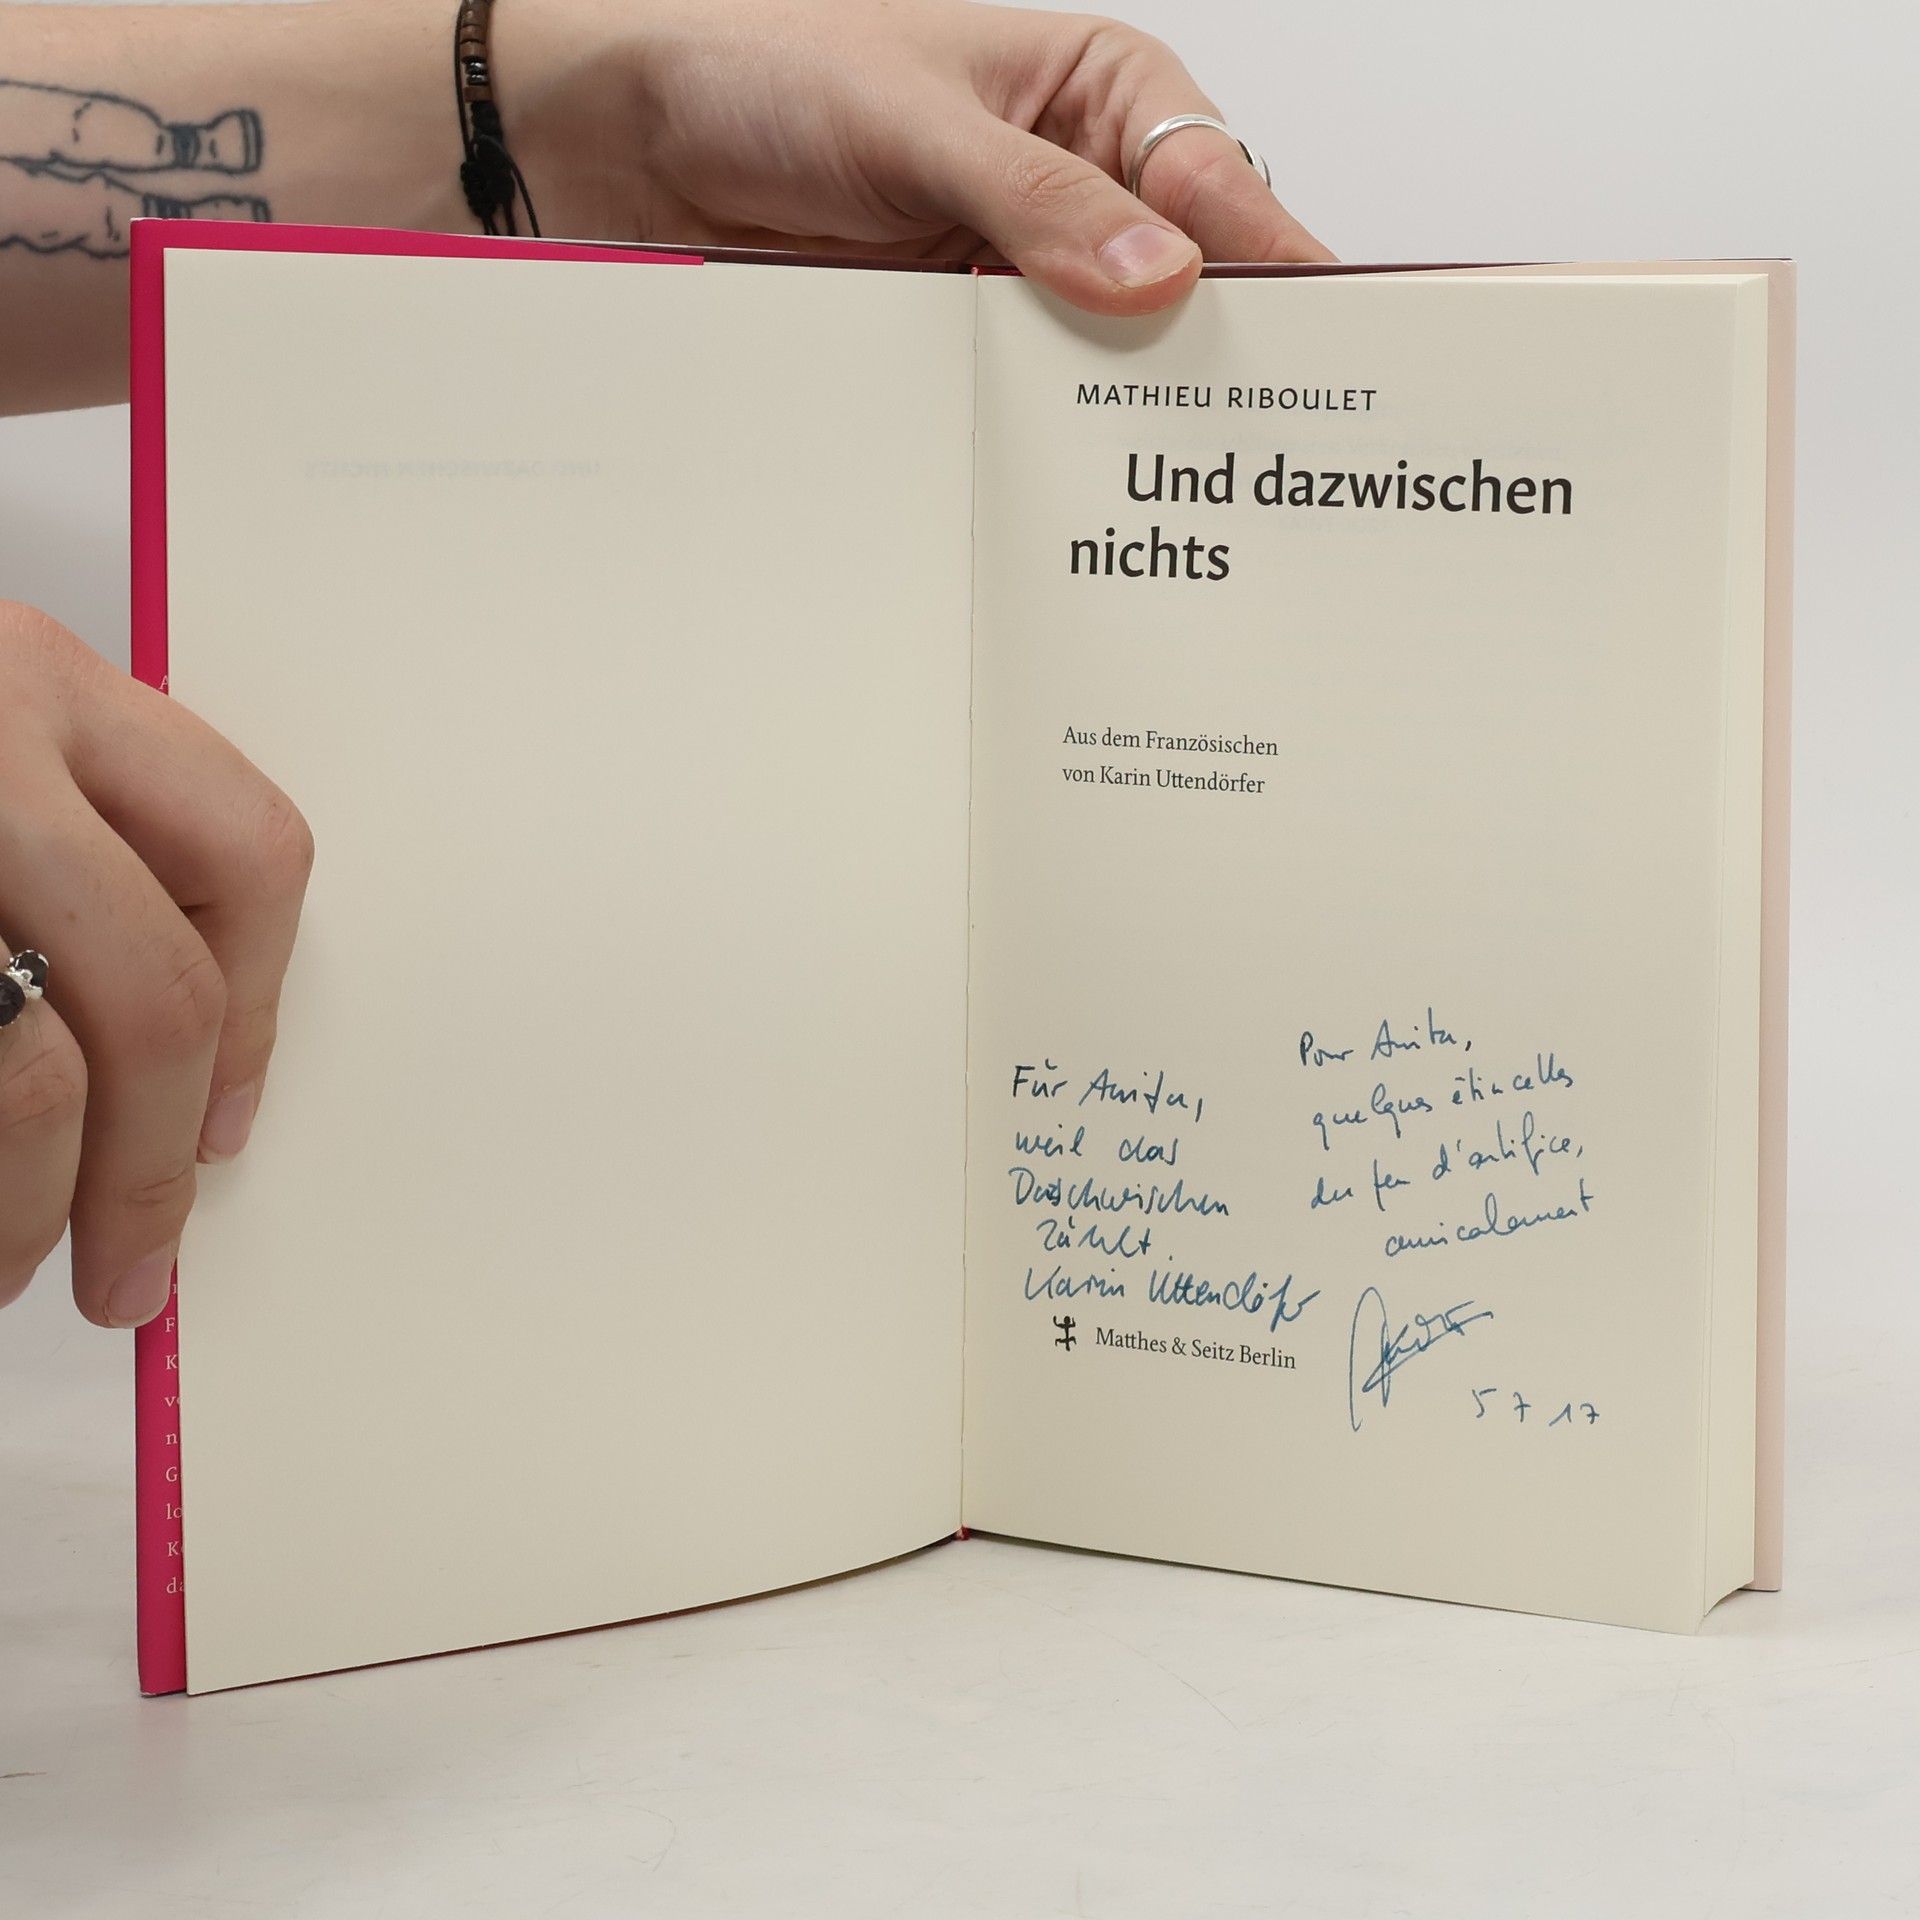 MATHIEU RIBOULET
Und dazwischen
nichts
Aus dem Französischen
von Karin Uttendörfer
Für Anita,
weil das
Daschwischen
zählt.
Karin Uttendörfer
Pour Anita,
quelques étincelles
du feu d'artifice,
amicalement
5 7 17
Matthes & Seitz Berlin